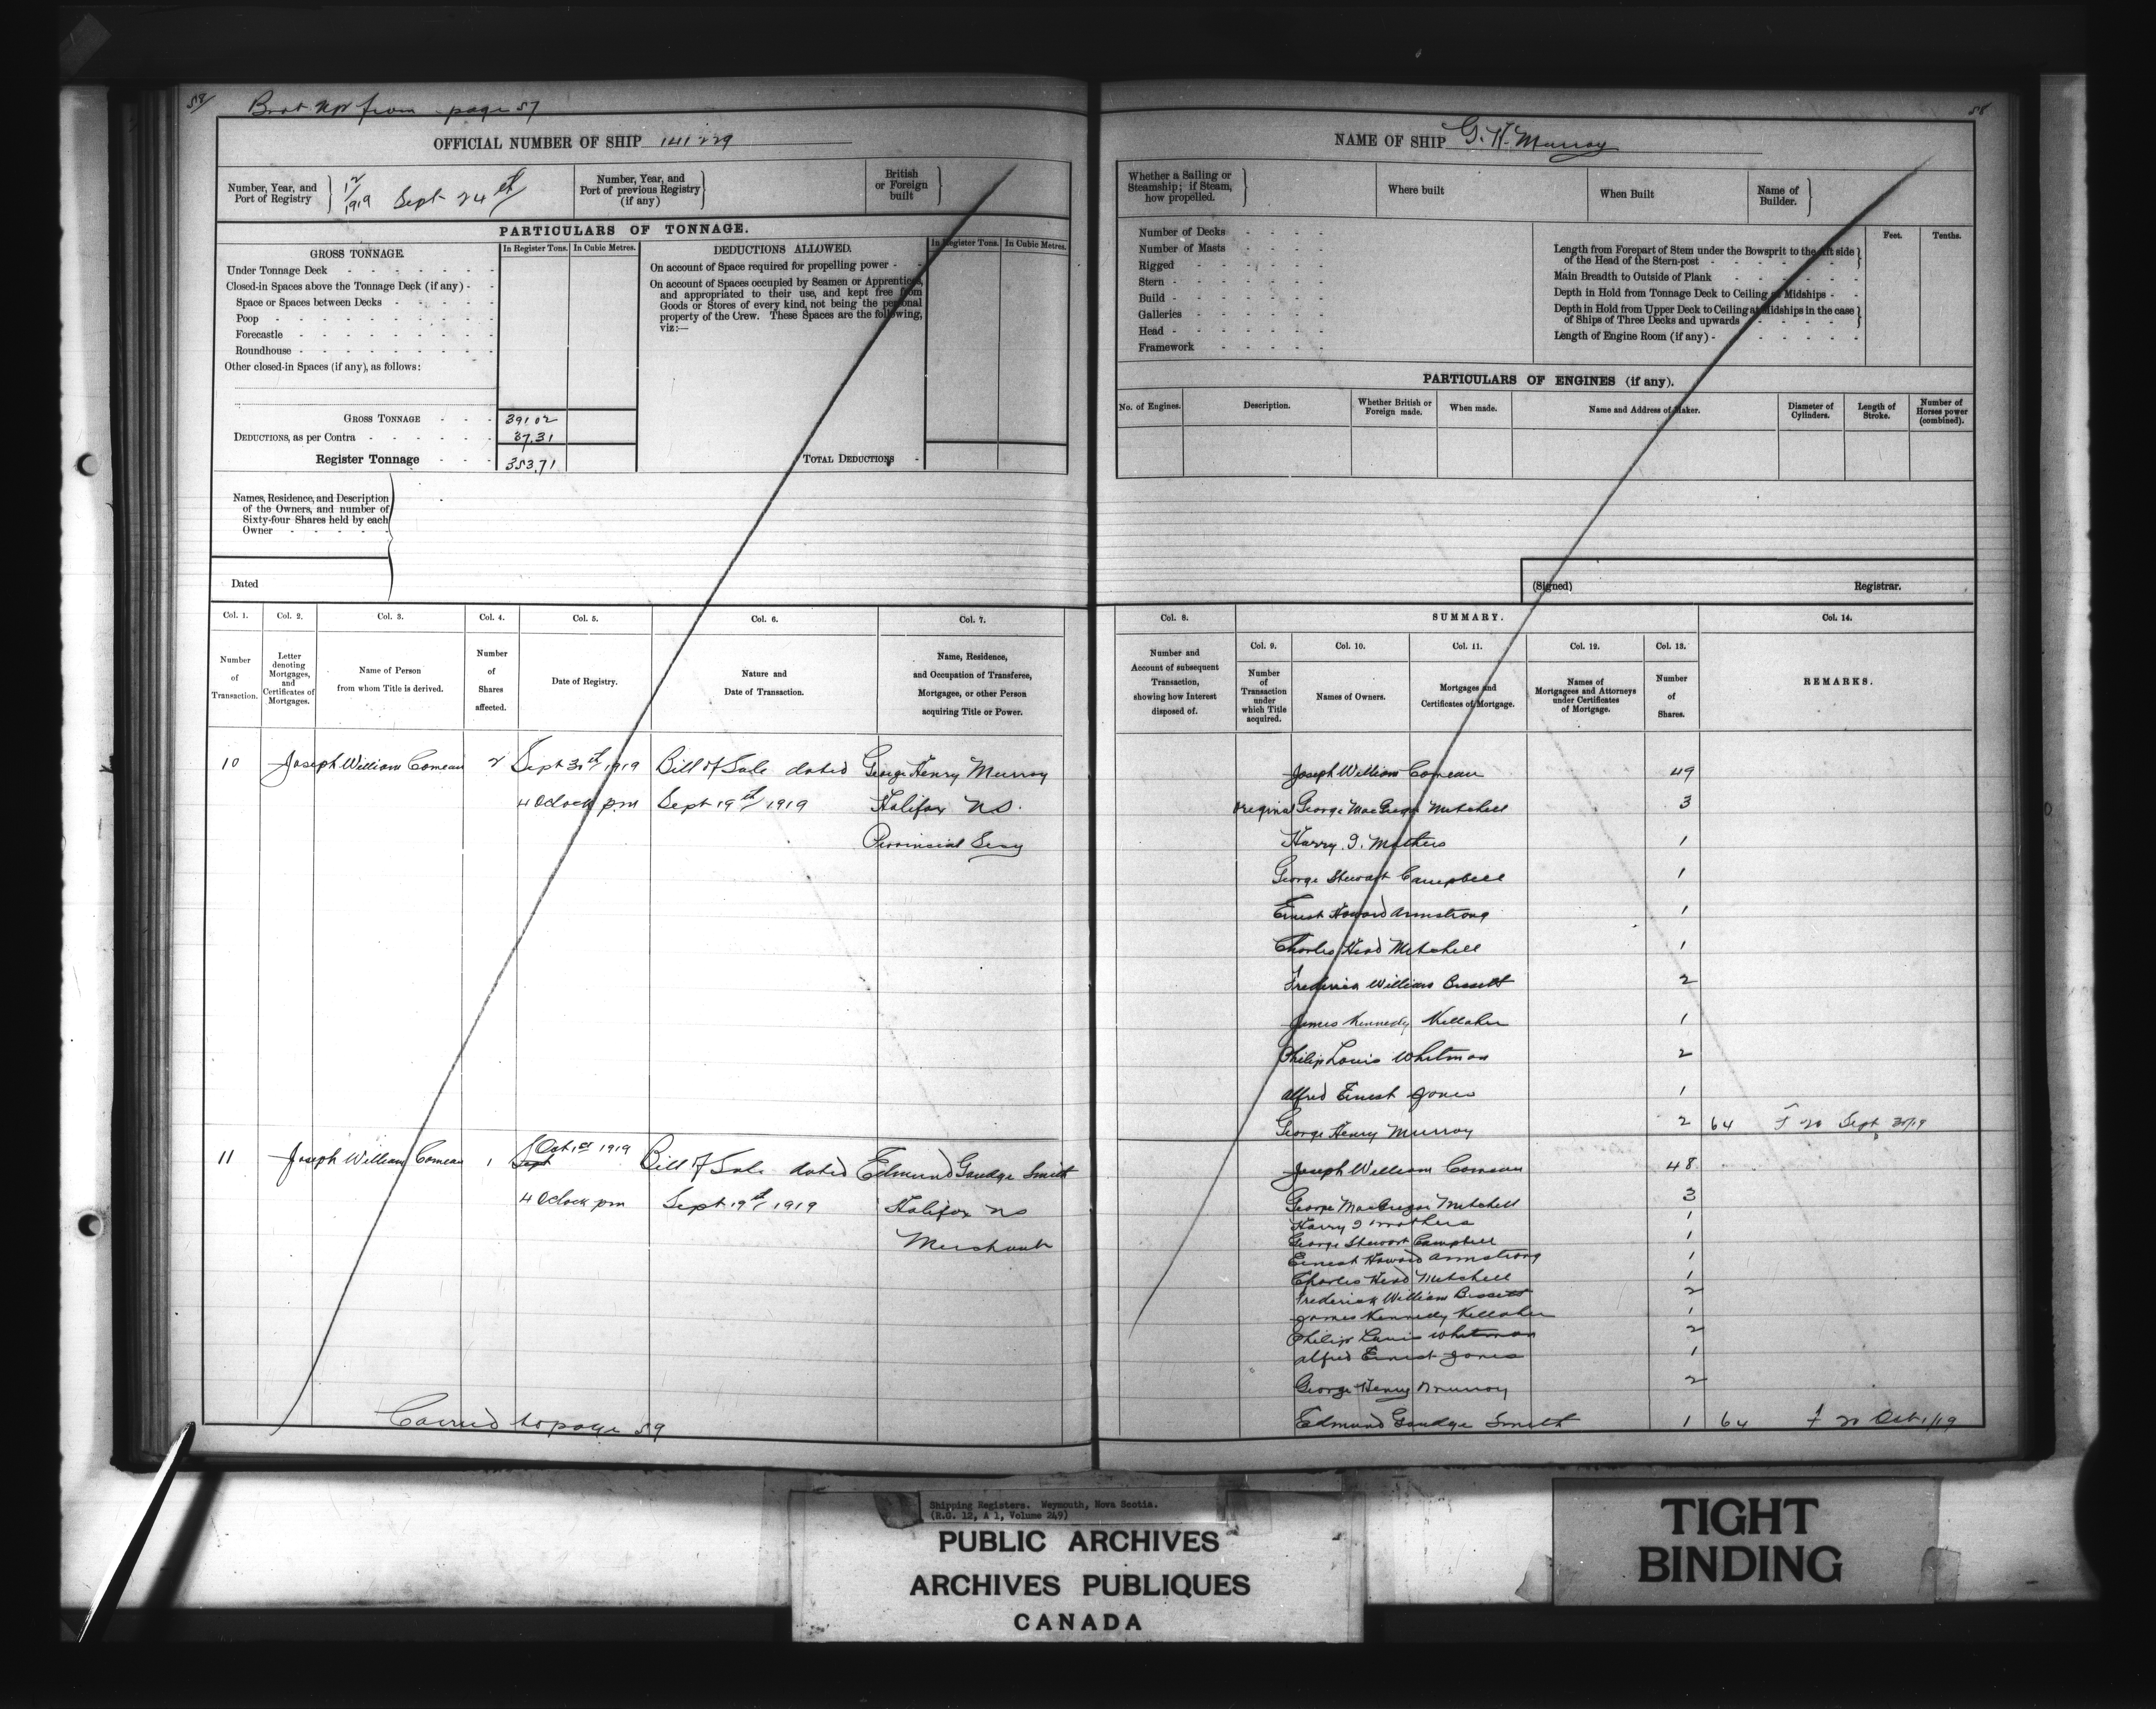 58/ Brot up from page 57
OFFICIAL NUMBER OF SHIP 141229
Number, Year, and Port of Registry } 12/1919 Sept 24th
Number, Year, and Port of previous Registry (if any) }
British or Foreign built }
PARTICULARS OF TONNAGE.
GROSS TONNAGE.
In Register Tons.
In Cubic Metres.
Under Tonnage Deck
Closed-in Spaces above the Tonnage Deck (if any)
Space or Spaces between Decks
Poop
Forecastle
Roundhouse
Other closed-in Spaces (if any), as follows:
GROSS TONNAGE 391.02
DEDUCTIONS, as per Contra 37.31
Register Tonnage 353.71
DEDUCTIONS ALLOWED.
In Register Tons.
In Cubic Metres.
On account of Space required for propelling power
On account of Spaces occupied by Seamen or Apprentices,
and appropriated to their use, and kept free from
Goods or Stores of every kind, not being the personal
property of the Crew. These Spaces are the following,
viz:—
TOTAL DEDUCTIONS
Names, Residence, and Description
of the Owners, and number of
Sixty-four Shares held by each
Owner
Dated
Col. 1. Col. 2. Col. 3. Col. 4. Col. 5. Col. 6. Col. 7.
Number of Transaction.
Letter denoting Mortgages, and Certificates of Mortgages.
Name of Person from whom Title is derived.
Number of Shares affected.
Date of Registry.
Nature and Date of Transaction.
Name, Residence, and Occupation of Transferee, Mortgages, or other Person acquiring Title or Power.
10 Joseph William Comeau 2 Sept 30th/1919 Bill of Sale dated George Henry Murray
4 Oclock pm Sept 19th/1919 Halifax NS.
Provincial Secy
11 Joseph William Comeau 1 Sept Oct 1st 1919 Bill of Sale dated Edmund Gaudge Smith
4 Oclock pm Sept 19th/1919 Halifax NS
Merchant
Carried to page 59
58
NAME OF SHIP G. H. Murray
Whether a Sailing or Steamship; if Steam, how propelled. }
Where built
When Built
Name of Builder. }
Number of Decks
Number of Masts
Rigged
Stern
Build
Galleries
Head
Framework
Feet. Tenths.
Length from Forepart of Stem under the Bowsprit to the aft side
of the Head of the Stern-post
Main Breadth to Outside of Plank
Depth in Hold from Tonnage Deck to Ceiling at Midships
Depth in Hold from Upper Deck to Ceiling at Midships in the case
of Ships of Three Decks and upwards
Length of Engine Room (if any)
PARTICULARS OF ENGINES (if any).
No. of Engines.
Description.
Whether British or Foreign made.
When made.
Name and Address of Maker.
Diameter of Cylinders.
Length of Stroke.
Number of Horses power (combined).
(Signed) Registrar.
Col. 8. SUMMARY. Col. 14.
Number and Account of subsequent Transaction, showing how Interest disposed of.
Col. 9. Col. 10. Col. 11. Col. 12. Col. 13.
Number of Transaction under which Title acquired.
Names of Owners.
Mortgages and Certificates of Mortgage.
Names of Mortgagees and Attorneys under Certificates of Mortgage.
Number of Shares.
REMARKS.
Joseph William Comeau 49
Original George MacGregor Mitchell 3
Harry I. Mathers 1
George Stewart Campbell 1
Ernest Howard Armstrong 1
Charles Head Mitchell 1
Frederick William Bissett 2
James Kennedy Kellaher 1
Philip Louis Whitman 2
Alfred Ernest Jones 1
George Henry Murray 2 64 Sept 30/19
Joseph William Comeau 48
George MacGregor Mitchell 3
Harry I Mathers 1
George Stewart Campbell 1
Ernest Howard Armstrong 1
Charles Head Mitchell 1
Frederick William Bissett 2
James Kennedy Kellaher 1
Philip Louis Whitman 2
Alfred Ernest Jones 1
George Henry Murray 2
Edmund Gaudge Smith 1 64 Oct 1/19
Shipping Registers. Weymouth, Nova Scotia.
(R.G. 12, A 1, Volume 249)
PUBLIC ARCHIVES
ARCHIVES PUBLIQUES
CANADA
TIGHT
BINDING